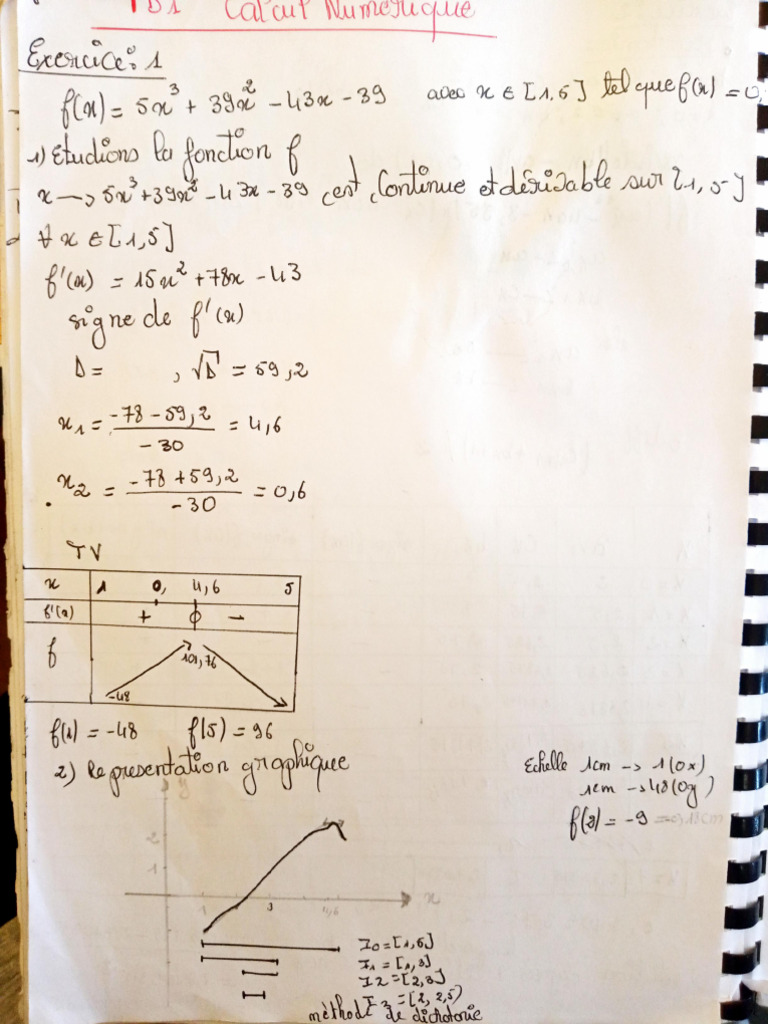 TD1 Calcul Numérique
Exercice: 1
f(x) = 5x³ + 39x² - 43x - 39 avec x ∈ [1,5] tel que f(x) = 0,
1) Etudions la fonction f
x → 5x³+39x² - 43x - 39 est continue et dérivable sur [1, 5]
∀ x ∈ [1,5]
f'(x) = 15x² + 78x - 43
signe de f'(x)
Δ = , √Δ = 59,2
x₁ = (-78 - 59,2)/(-30) = 4,6
x₂ = (-78 + 59,2)/(-30) = 0,6
TV
x 1 0, 4,6 5
f'(x) + 0 -
f 101,76
-48
f(1) = -48 f(5) = 96
2) Representation graphique
Echelle 1cm → 1(0x)
1cm → 48(0y)
f(3) = -9 = 0,18cm
y
2
1
x
1 3 4,6
I0 = [1,5]
I1 = [1,3]
I2 = [2,3]
I3 = [2, 2,5)
méthode de dichotomie